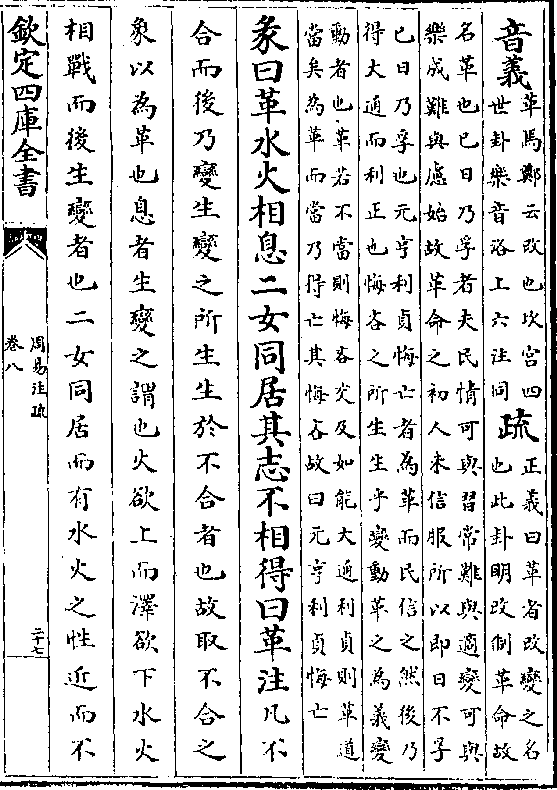 音義革馬鄭云改也坎宫四
世卦樂音洛上六注同
疏正義曰革者改變之名
也此卦明改制革命故
名革也已日乃孚者夫民情可與習常難與適變可與
樂成難與慮始故革命之初人未信服所以即日不孚
已日乃孚也元亨利貞悔亡者為革而民信之然後乃
得大通而利正也悔吝之所生生乎變動革之為義變
動者也革若不當則悔吝交及如能大通利貞則革道
當矣為革而當乃得亡其悔吝故曰元亨利貞悔亡
彖曰革水火相息二女同居其志不相得曰革注凡不
合而後乃變生變之所生生於不合者也故取不合之
象以為革也息者生變之謂也火欲上而澤欲下水火
相戰而後生變者也二女同居而有水火之性近而不
欽定四庫全書
周易注疏
卷八
二十七